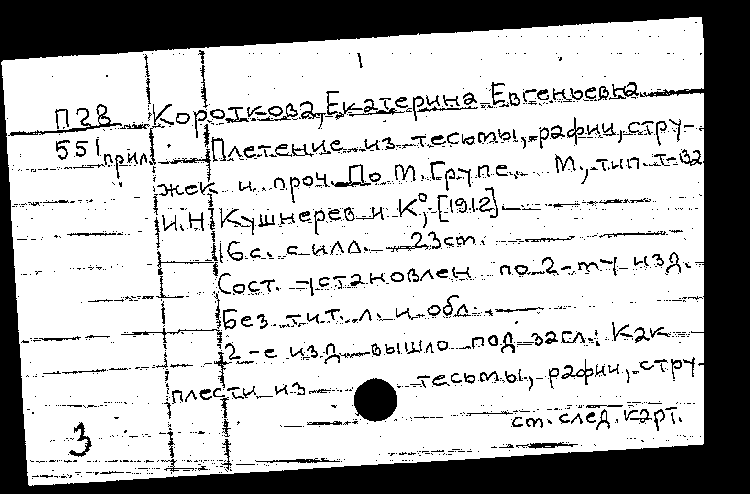 1
П28 Короткова, Екатерина Евгеньевна
551 прил. Плетение из тесьмы, рафии, стру-
жек и проч. По М. Групе. М., тип. т-ва
И.Н. Кушнерев и К°, [1912].
16 с. с илл. 23 ст.
Сост. установлен по 2-му изд.
Без тит. л. и обл.
2-е изд. вышло под загл.: Как
плести из тесьмы, рафии, стру-
3 см. след. карт.